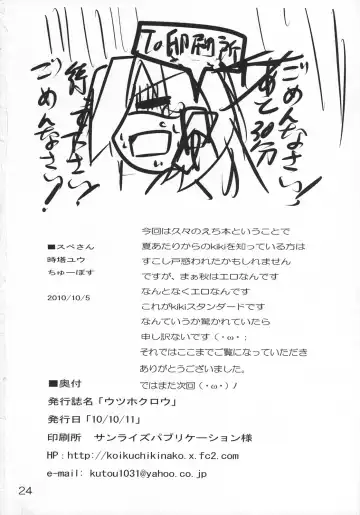 To印刷所
ごめんなさい
あと30分
待って下さい
ごめんなさい!
今回は久々のえち本ということで
夏あたりからのkikiを知っている方は
すこし戸惑われたかもしれません
ですが、まぁ秋はエロなんです
なんとなくエロなんです
これがkikiスタンダードです
なんていうか驚かれていたら
申し訳ないです(・ω・;
それではここまでご覧になっていただき
ありがとうございました。
ではまた次回(・ω・)ノ
■スペさん
時塔ユウ
ちゅーぼす
2010/10/5
■奥付
発行誌名「ウツホクロウ」
発行日「10/10/11」
印刷所 サンライズパブリケーション様
HP:http://koikuchikinako.x.fc2.com
e-mail: kutou1031@yahoo.co.jp
24